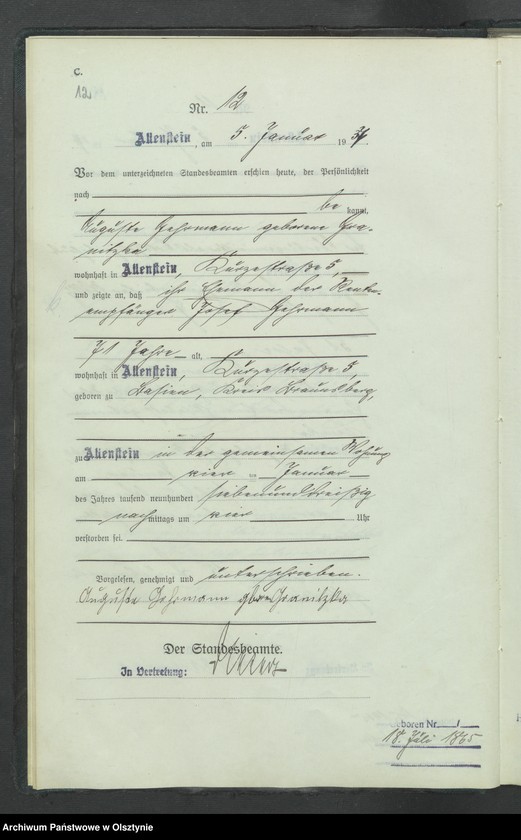 C.
12
Nr. 12
Allenstein, am 5. Januar 1937.
Vor dem unterzeichneten Standesbeamten erschien heute, der Persönlichkeit
nach
be kannt,
Auguste Gehrmann geborene Gra-
nitzka
wohnhaft in Allenstein, Kurzestraße 5,
und zeigte an, daß ihr Ehemann der Renten-
empfänger Josef Gehrmann
71 Jahre alt,
wohnhaft in Allenstein, Kurzestraße 5,
geboren zu Basien, Kreis Braunsberg,
zu Allenstein in der gemeinsamen Wohnung
am vier ten Januar
des Jahres tausend neunhundert siebenunddreißig
nach mittags um vier Uhr
verstorben sei.
Vorgelesen, genehmigt und unterschrieben.
Auguste Gehrmann geb. Granitzka
Der Standesbeamte.
In Vertretung:
Geboren Nr. /
18. Juli 1865
Archiwum Państwowe w Olsztynie